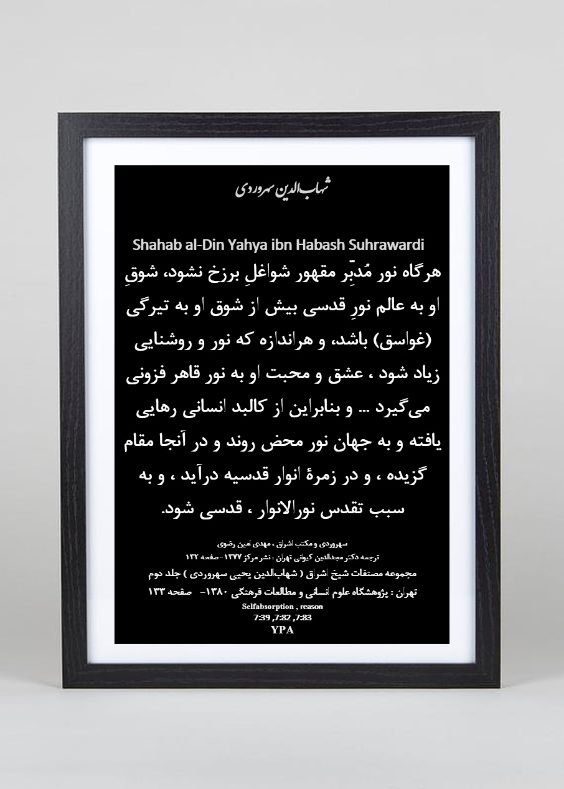 شهاب‌الدین سهروردی
Shahab al-Din Yahya ibn Habash Suhrawardi
هرگاه نور مُدبِّر مقهور شواغلِ برزخ نشود، شوقِ
او به عالم نورِ قدسی بیش از شوق او به تیرگی
(غواسق) باشد، و هراندازه که نور و روشنایی
زیاد شود ، عشق و محبت او به نور قاهر فزونی
می‌گیرد ... و بنابراین از کالبد انسانی رهایی
یافته و به جهان نور محض روند و در آنجا مقام
گزیده ، و در زمرهٔ انوار قدسیه درآید ، و به
سبب تقدس نورالانوار ، قدسی شود.
سهروردی و مکتب اشراق ، مهدی امین رضوی
ترجمه دکتر مجدالدین کیوانی تهران : نشر مرکز ۱۳۷۷-صفحه ۱۳۲
مجموعه مصنفات شیخ اشراق ( شهاب‌الدین یحیی سهروردی ) جلد دوم
تهران : پژوهشگاه علوم انسانی و مطالعات فرهنگی ۱۳۸۰- صفحه ۱۳۳
Selfabsorption , reason
7:39 ,7:82 ,7:83
YPA